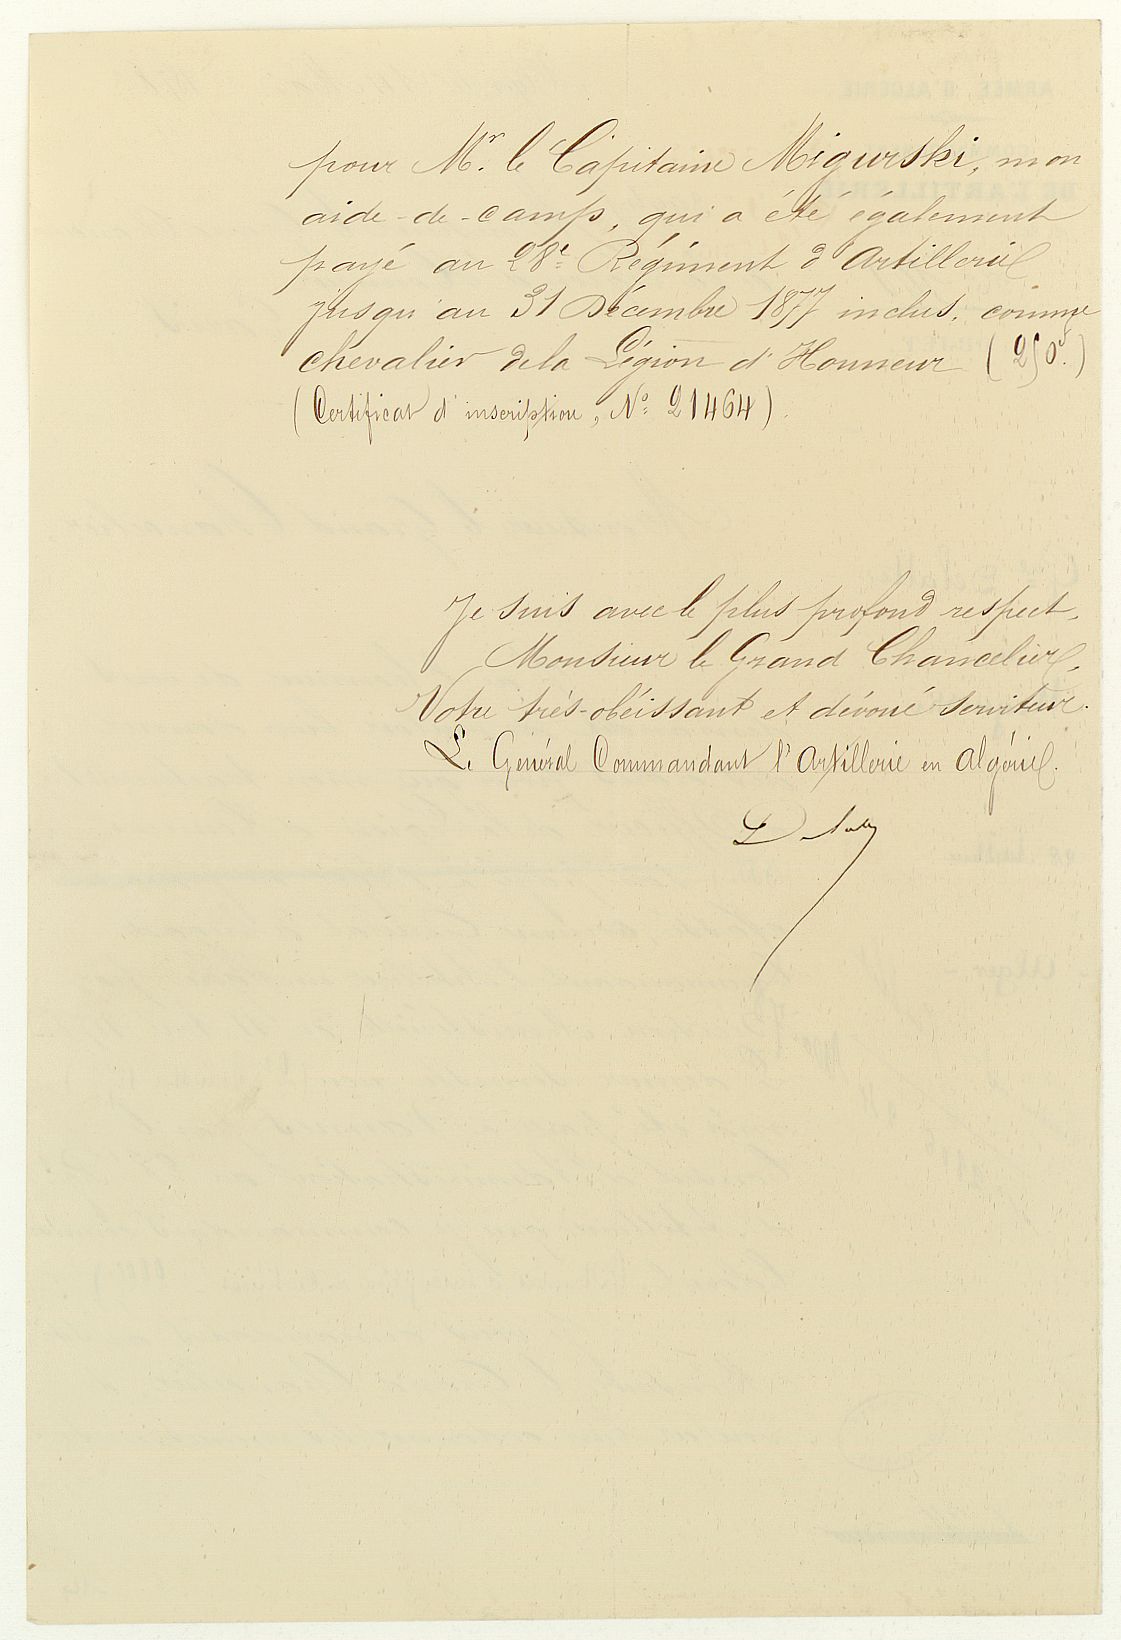 pour Mr. le Capitaine Migurski, mon
aide-de-camp, qui a été également
payé au 28e Régiment d'Artillerie
jusqu'au 31 Décembre 1877 inclus, comme
chevalier de la Légion d'Honneur (250f.)
(Certificat d'inscription, No. 21464).
Je suis avec le plus profond respect,
Monsieur le Grand Chancelier,
Votre très-obéissant et dévoué serviteur.
Le Général Commandant l'Artillerie en Algérie.